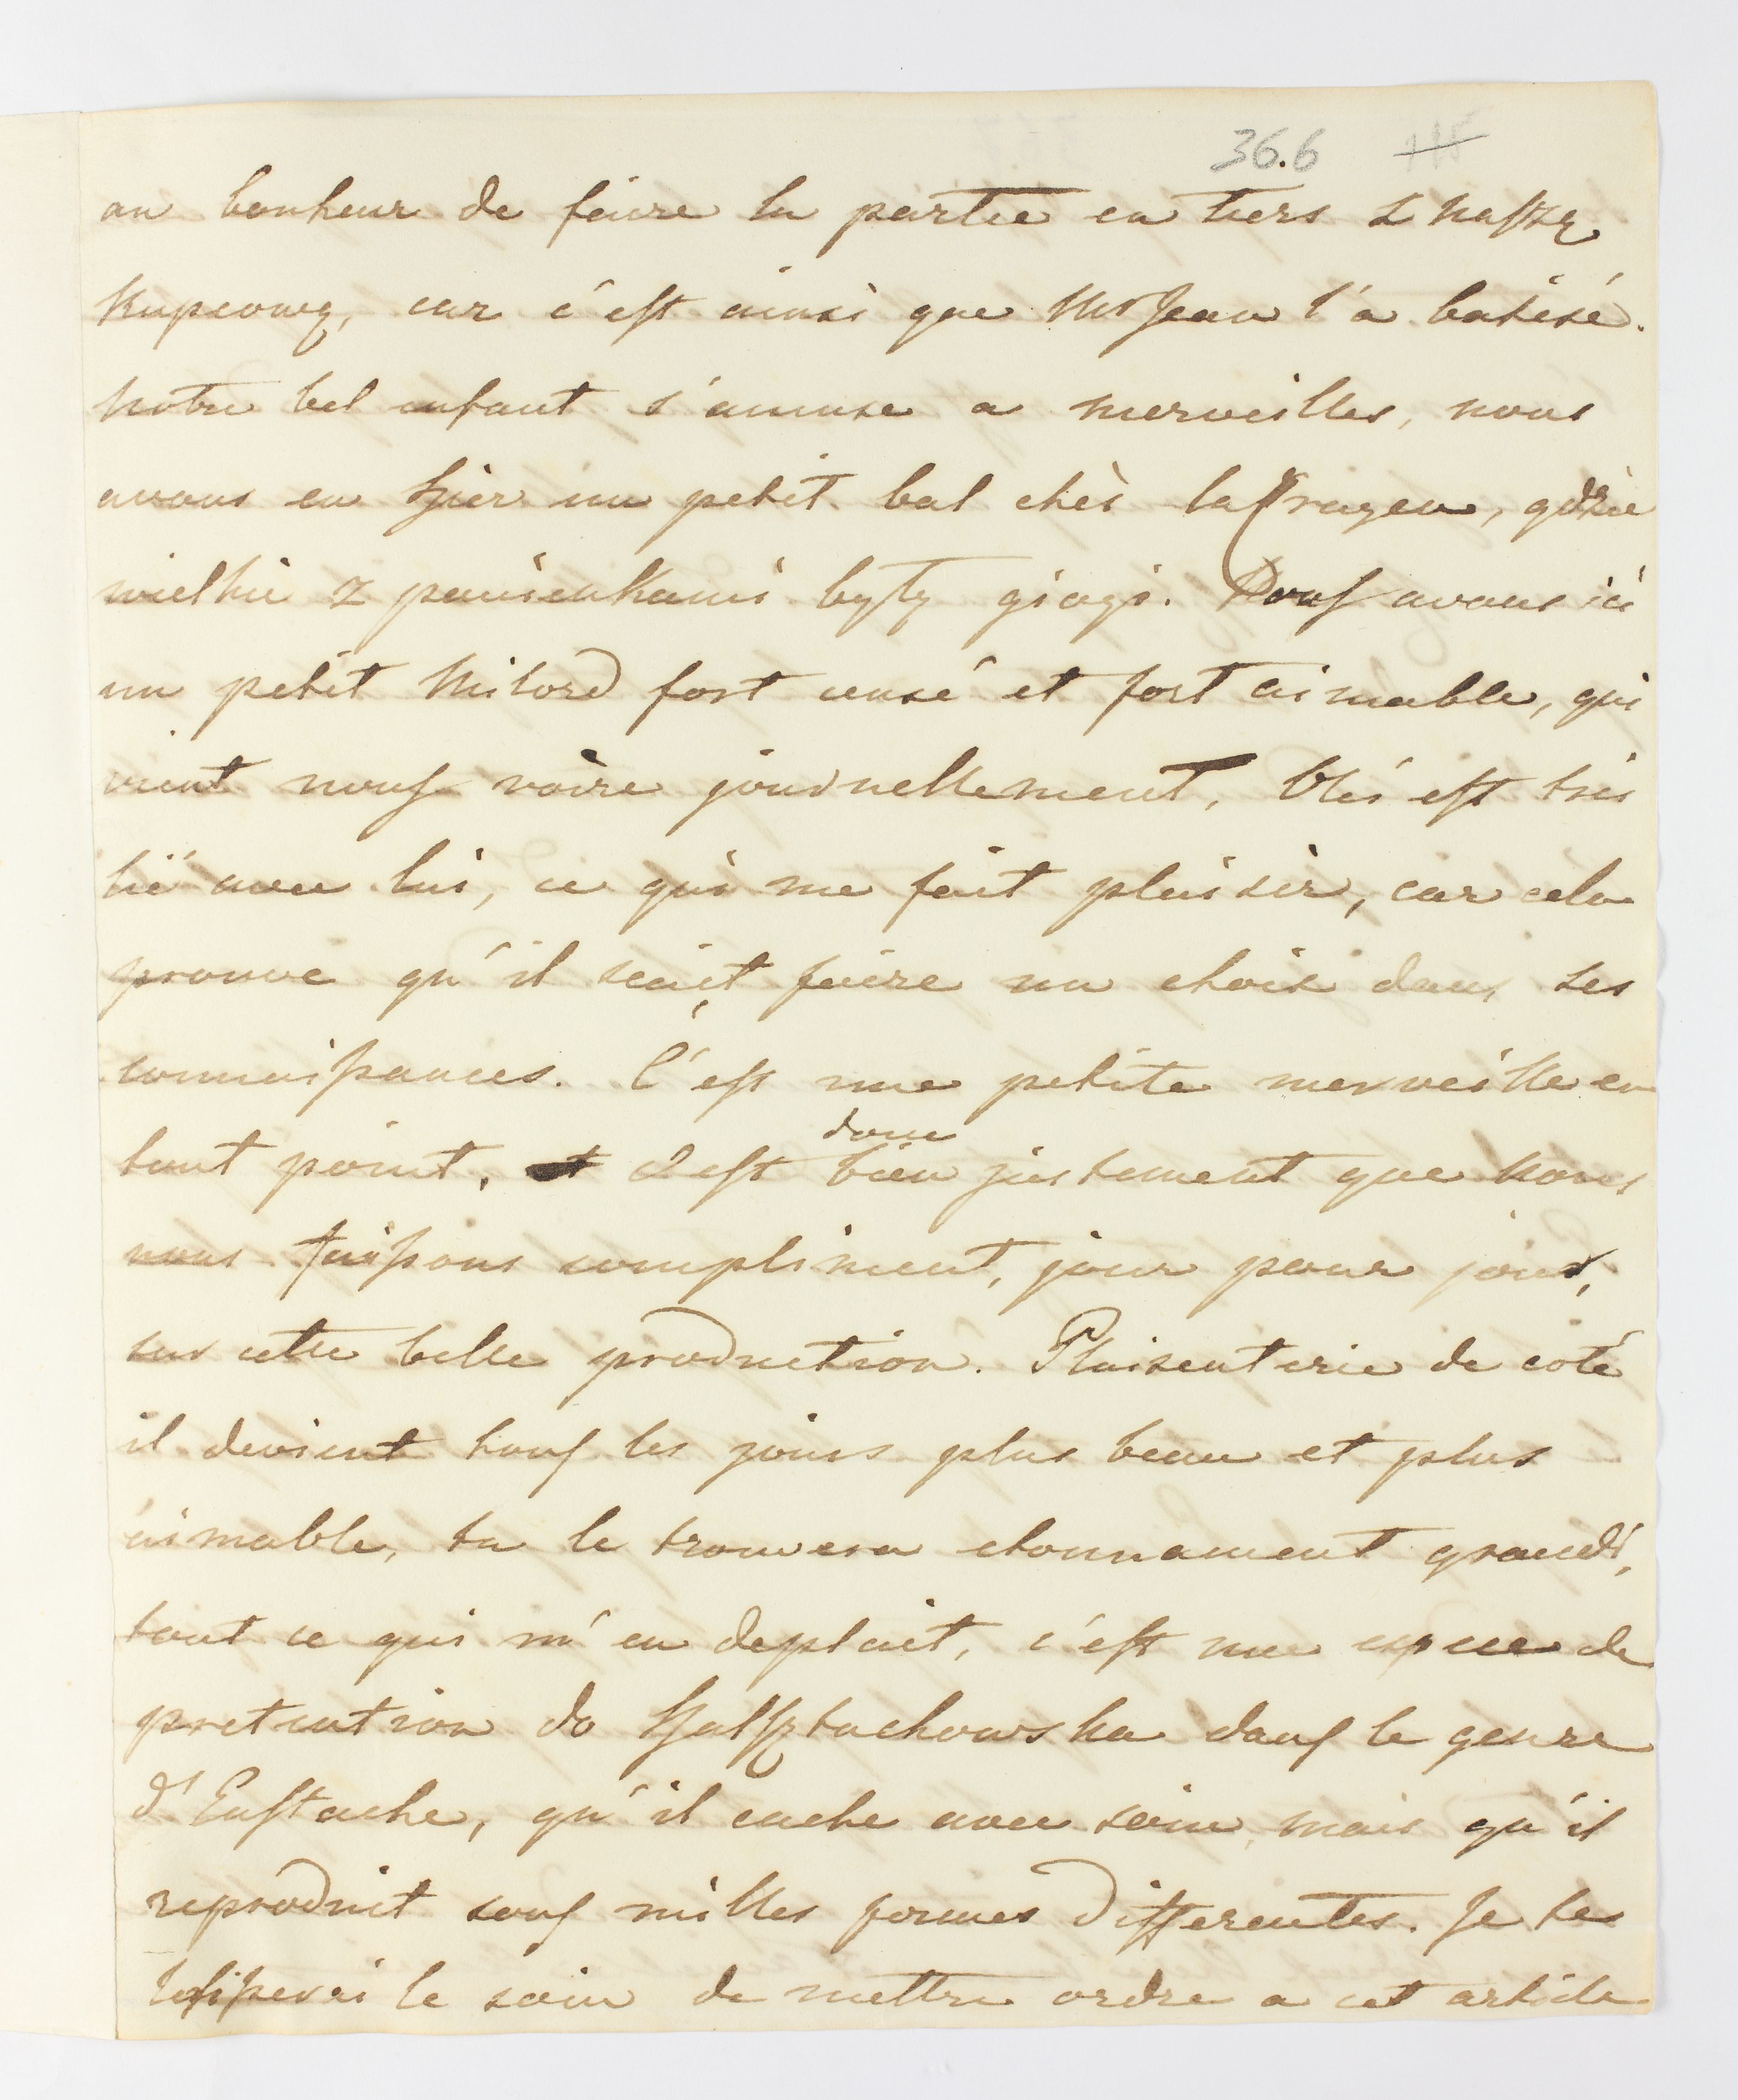 36.6
au bonheur de faire la partie en tiers z naszą
Kupcową, car c'est ainsi que Mr Jean l'a batisé.
Notre bel enfant s'amuse a merveilles, nous
avons eu hier un petit bal chès la, gdzie
wielkie z panienkami były giogi. Nous avons ici
un petit Milord fort censé et fort aimable, qui
vient nous voire journellement, est très
lié avec lui, ce qui me fait plaisir, car cela
prouve qu'il sçait faire un choix dans ses
connaissances. C'est une petite merveille en
tout point, c'est donc bien justement que nous
nous faissons compliment, jour pour jour,
sur cette belle production. Plaisenterie de coté
il devient tous les jours plus beau et plus
aimable, tu le trouvera etonnament grandi,
tout ce qui m'en deplait, c'est une espece de
pretention do dans le genre
d'Eustache, qu'il cache avec soin, mais qu'il
reproduit sous milles formes differentes. Je te
laisserai le soin de mettre ordre a cet article